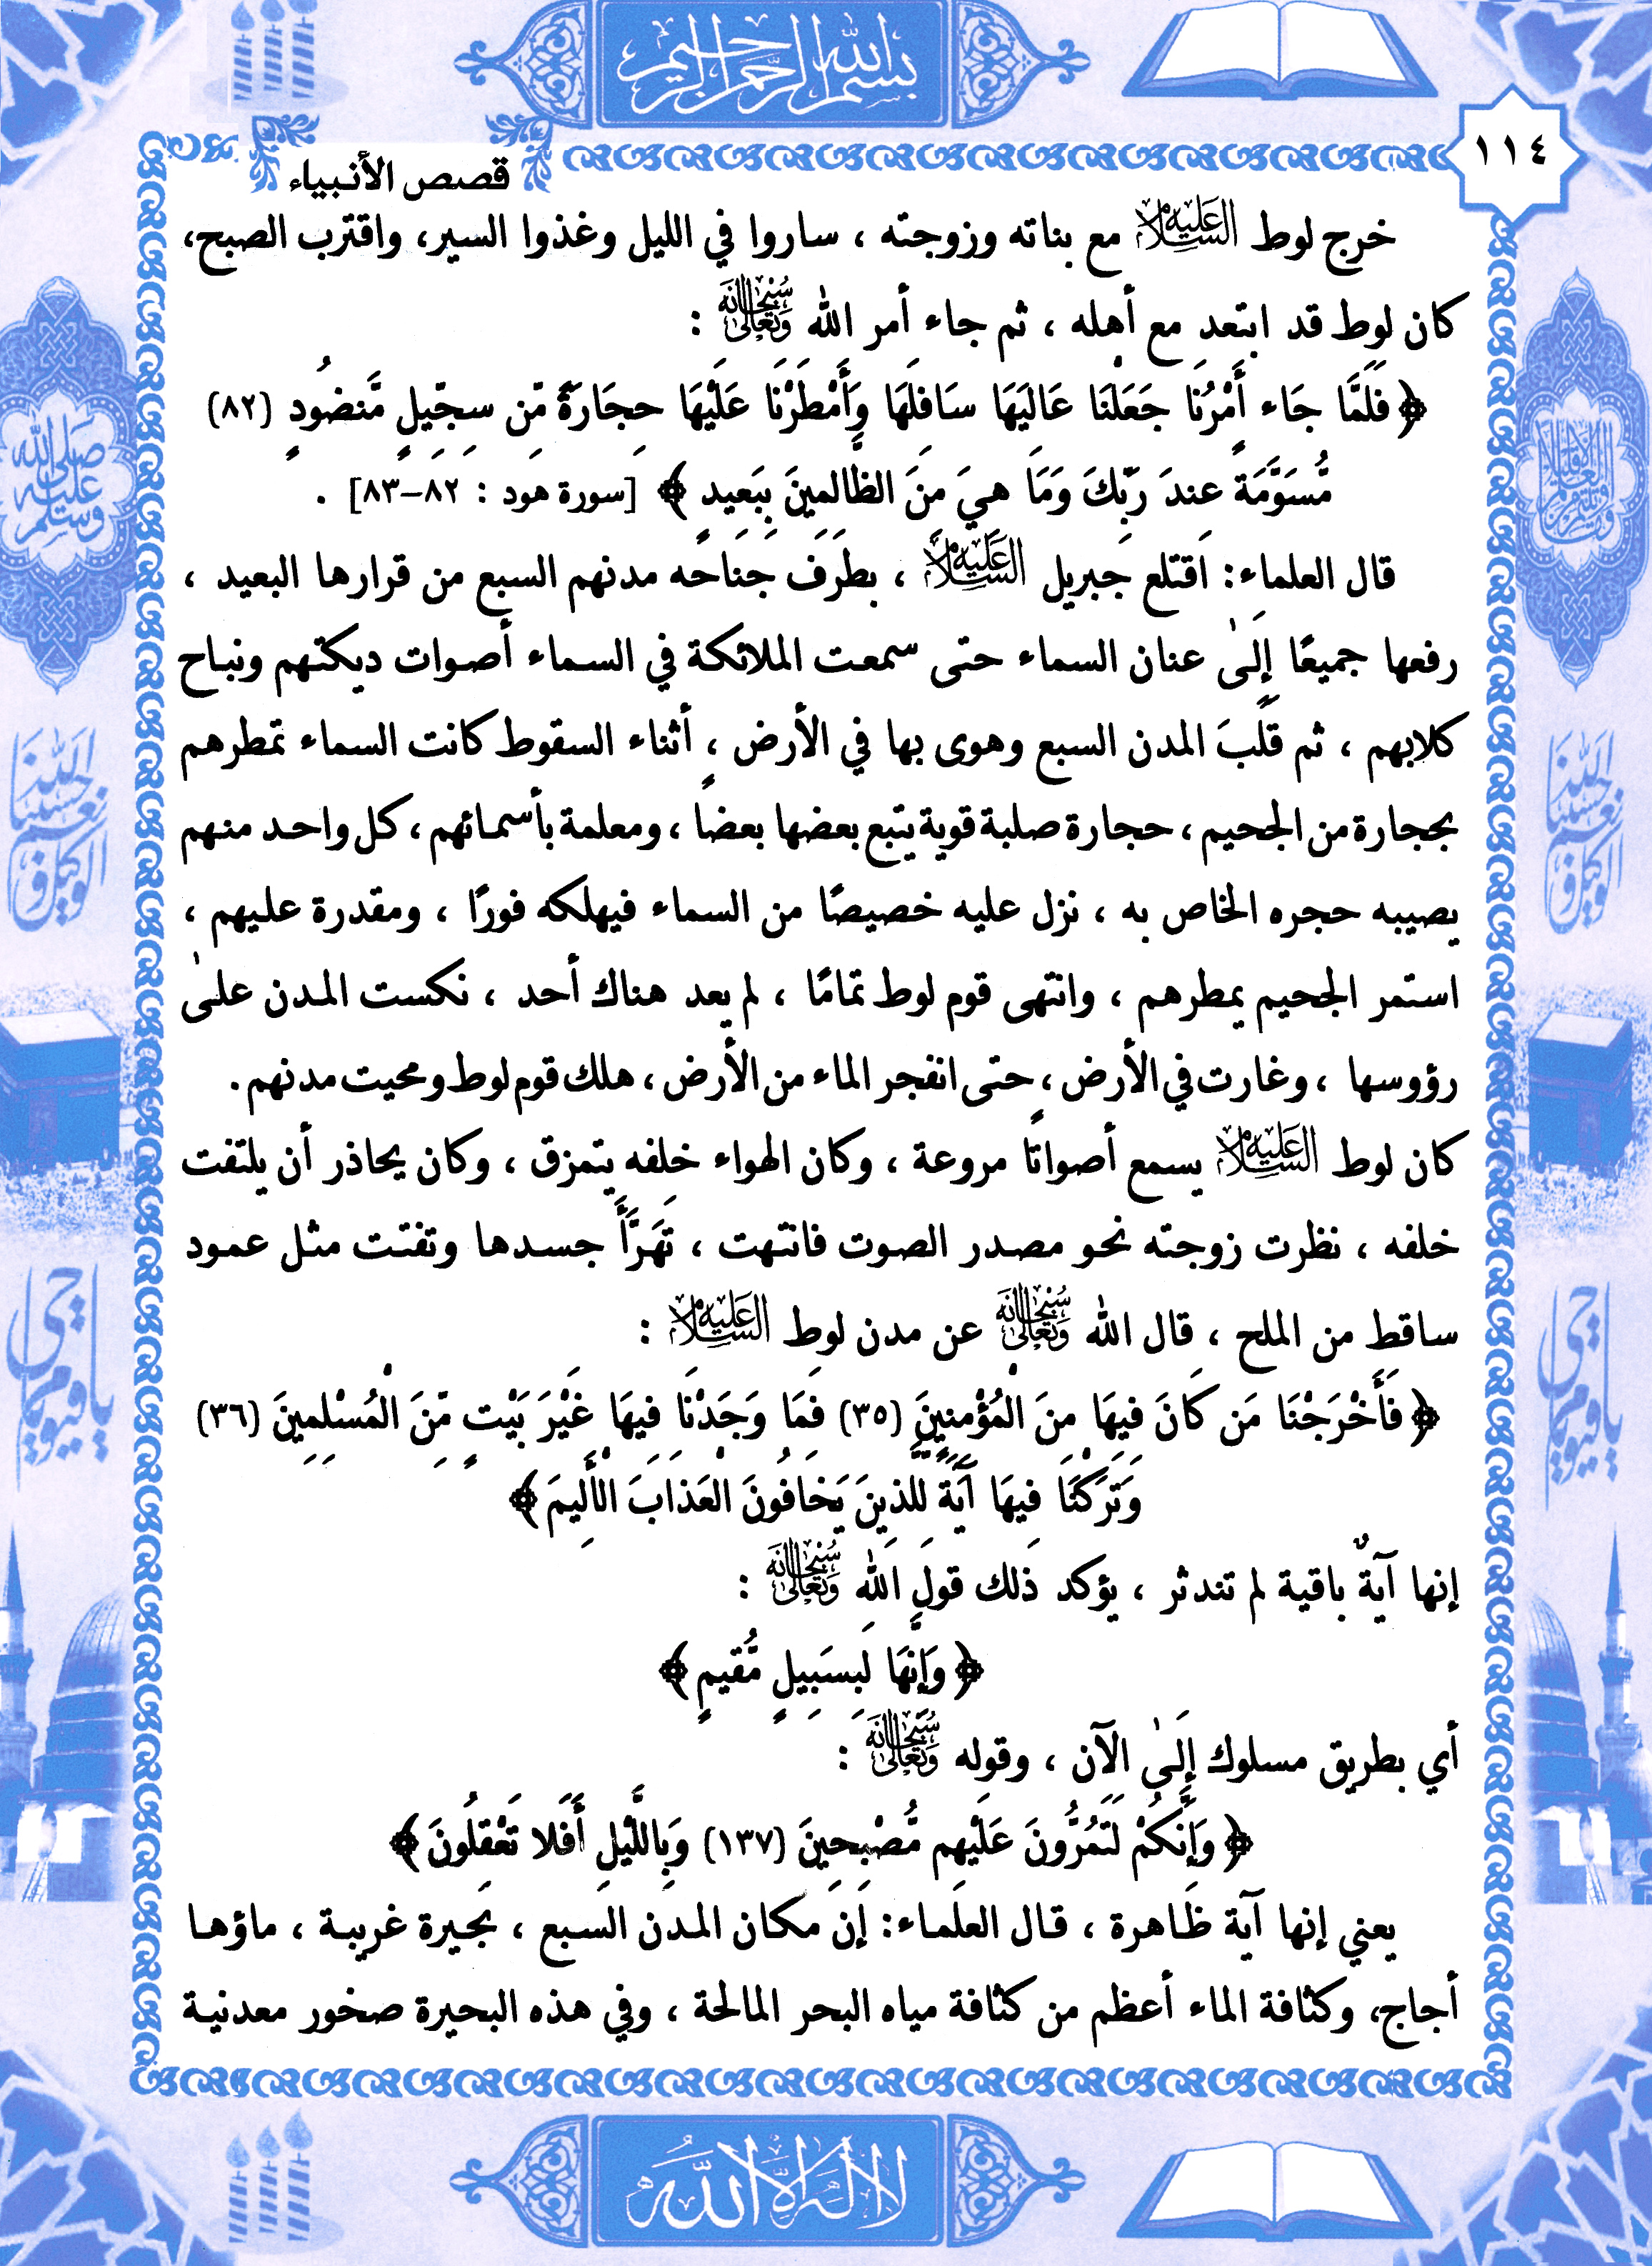 بسم الله الرحمن الرحيم
١١٤
قصص الأنبياء
خرج لوط عليه السلام مع بناته وزوجته ، ساروا في الليل وغذوا السير، واقترب الصبح،
كان لوط قد ابتعد مع أهله ، ثم جاء أمر الله سبحانه وتعالى :
﴿ فَلَمَّا جَاء أَمْرُنَا جَعَلْنَا عَالِيَهَا سَافِلَهَا وَأَمْطَرْنَا عَلَيْهَا حِجَارَةً مِّن سِجِّيلٍ مَّنضُودٍ (٨٢)
مُّسَوَّمَةً عِندَ رَبِّكَ وَمَا هِيَ مِنَ الظَّالِمِينَ بِبَعِيدٍ ﴾ [سورة هود : ٨٢-٨٣] .
قال العلماء: اقتلع جبريل عليه السلام ، بطرف جناحه مدنهم السبع من قرارها البعيد ،
رفعها جميعًا إِلَىٰ عنان السماء حتى سمعت الملائكة في السماء أصوات ديكتهم ونباح
كلابهم ، ثم قَلَبَ المدن السبع وهوى بها في الأرض ، أثناء السقوط كانت السماء تمطرهم
بحجارة من الجحيم ، حجارة صلبة قوية يتبع بعضها بعضًا ، ومعلمة بأسمائهم ، كل واحد منهم
يصيبه حجره الخاص به ، نزل عليه خصيصًا من السماء فيهلكه فورًا ، ومقدرة عليهم ،
استمر الجحيم يمطرهم ، وانتهى قوم لوط تمامًا ، لم يعد هناك أحد ، نكست المدن علىٰ
رؤوسها ، وغارت في الأرض ، حتى انفجر الماء من الأرض ، هلك قوم لوط ومحيت مدنهم .
كان لوط عليه السلام يسمع أصواتًا مروعة ، وكان الهواء خلفه يتمزق ، وكان يحاذر أن يلتفت
خلفه ، نظرت زوجته نحو مصدر الصوت فانتهت ، تَهَرَّأَ جسدها وتفتت مثل عمود
ساقط من الملح ، قال الله سبحانه وتعالى عن مدن لوط عليه السلام :
﴿ فَأَخْرَجْنَا مَن كَانَ فِيهَا مِنَ الْمُؤْمِنِينَ (٣٥) فَمَا وَجَدْنَا فِيهَا غَيْرَ بَيْتٍ مِّنَ الْمُسْلِمِينَ (٣٦)
وَتَرَكْنَا فِيهَا آيَةً لِّلَّذِينَ يَخَافُونَ الْعَذَابَ الْأَلِيمَ ﴾
إنها آيةٌ باقية لم تندثر ، يؤكد ذلك قول الله سبحانه وتعالى :
﴿ وَإِنَّهَا لَبِسَبِيلٍ مُّقِيمٍ ﴾
أي بطريق مسلوك إِلَىٰ الآن ، وقوله سبحانه وتعالى :
﴿ وَإِنَّكُمْ لَتَمُرُّونَ عَلَيْهِم مُّصْبِحِينَ (١٣٧) وَبِاللَّيْلِ أَفَلَا تَعْقِلُونَ ﴾
يعني إنها آية ظاهرة ، قال العلماء: إن مكان المدن السبع ، بحيرة غريبة ، ماؤها
أجاج، وكثافة الماء أعظم من كثافة مياه البحر المالحة ، وفي هذه البحيرة صخور معدنية
صلى الله عليه وسلم
حسبنا الله ونعم الوكيل
حسبنا الله ونعم الوكيل
يا حي يا قيوم
يا حي يا قيوم
لا إله إلا الله